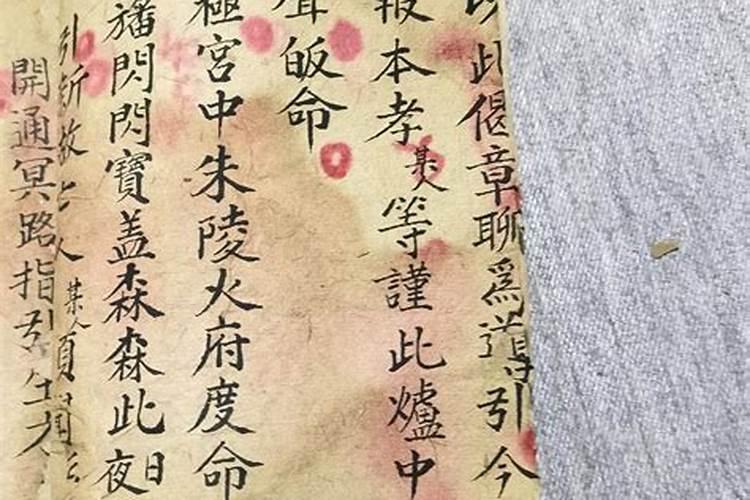 以此偈章聊爲道引今
報本孝某人等謹此爐中
皈命
極宮中朱陵火府度命
旛閃閃寶盖森森此日夜
引新故亡人某人
開通冥路指引